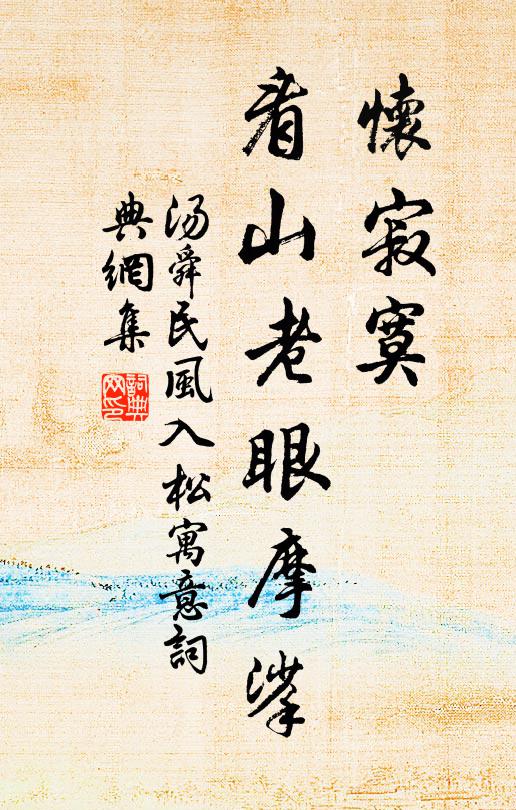 懷寂寞
看山老眼摩挲
汤舜民風入松寓意詞
典網集
詞典
网印